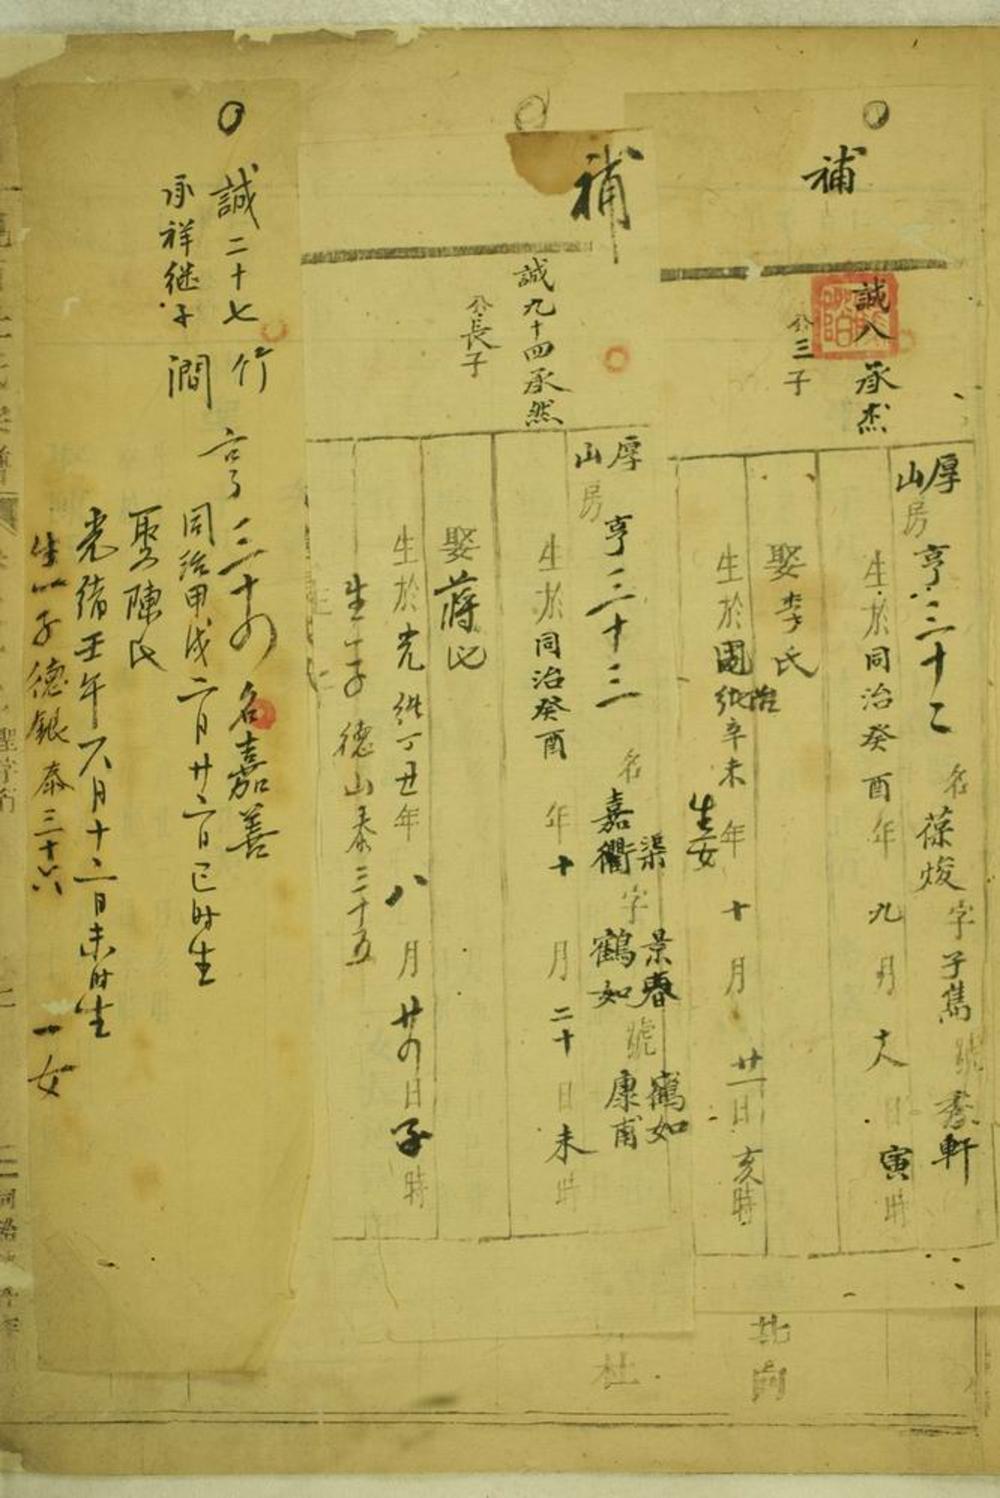 補
誠八 承杰
公三子
厚山房 亨三十二 名葆焌 字子雋 號秀軒
生於同治癸酉年九月十八日寅時
娶李氏
生於同治辛未年十月廿一日亥時
生女
補
誠九十四承然
公長子
厚山房 亨三十三 名嘉衢 渠 字鶴如 景春 號康甫 鶴如
生於同治癸酉年十月二十日未時
娶蔣氏
生於光緒丁丑年八月廿四日子時
生一子 德山泰三十五
誠二十七 竹
承祥继子 澗
亨三十四 名嘉善
同治甲戌二月廿六日巳时生
娶陳氏
光绪壬午年六月十二日未时生
生一子德銀泰三十六 一女
北向
杜